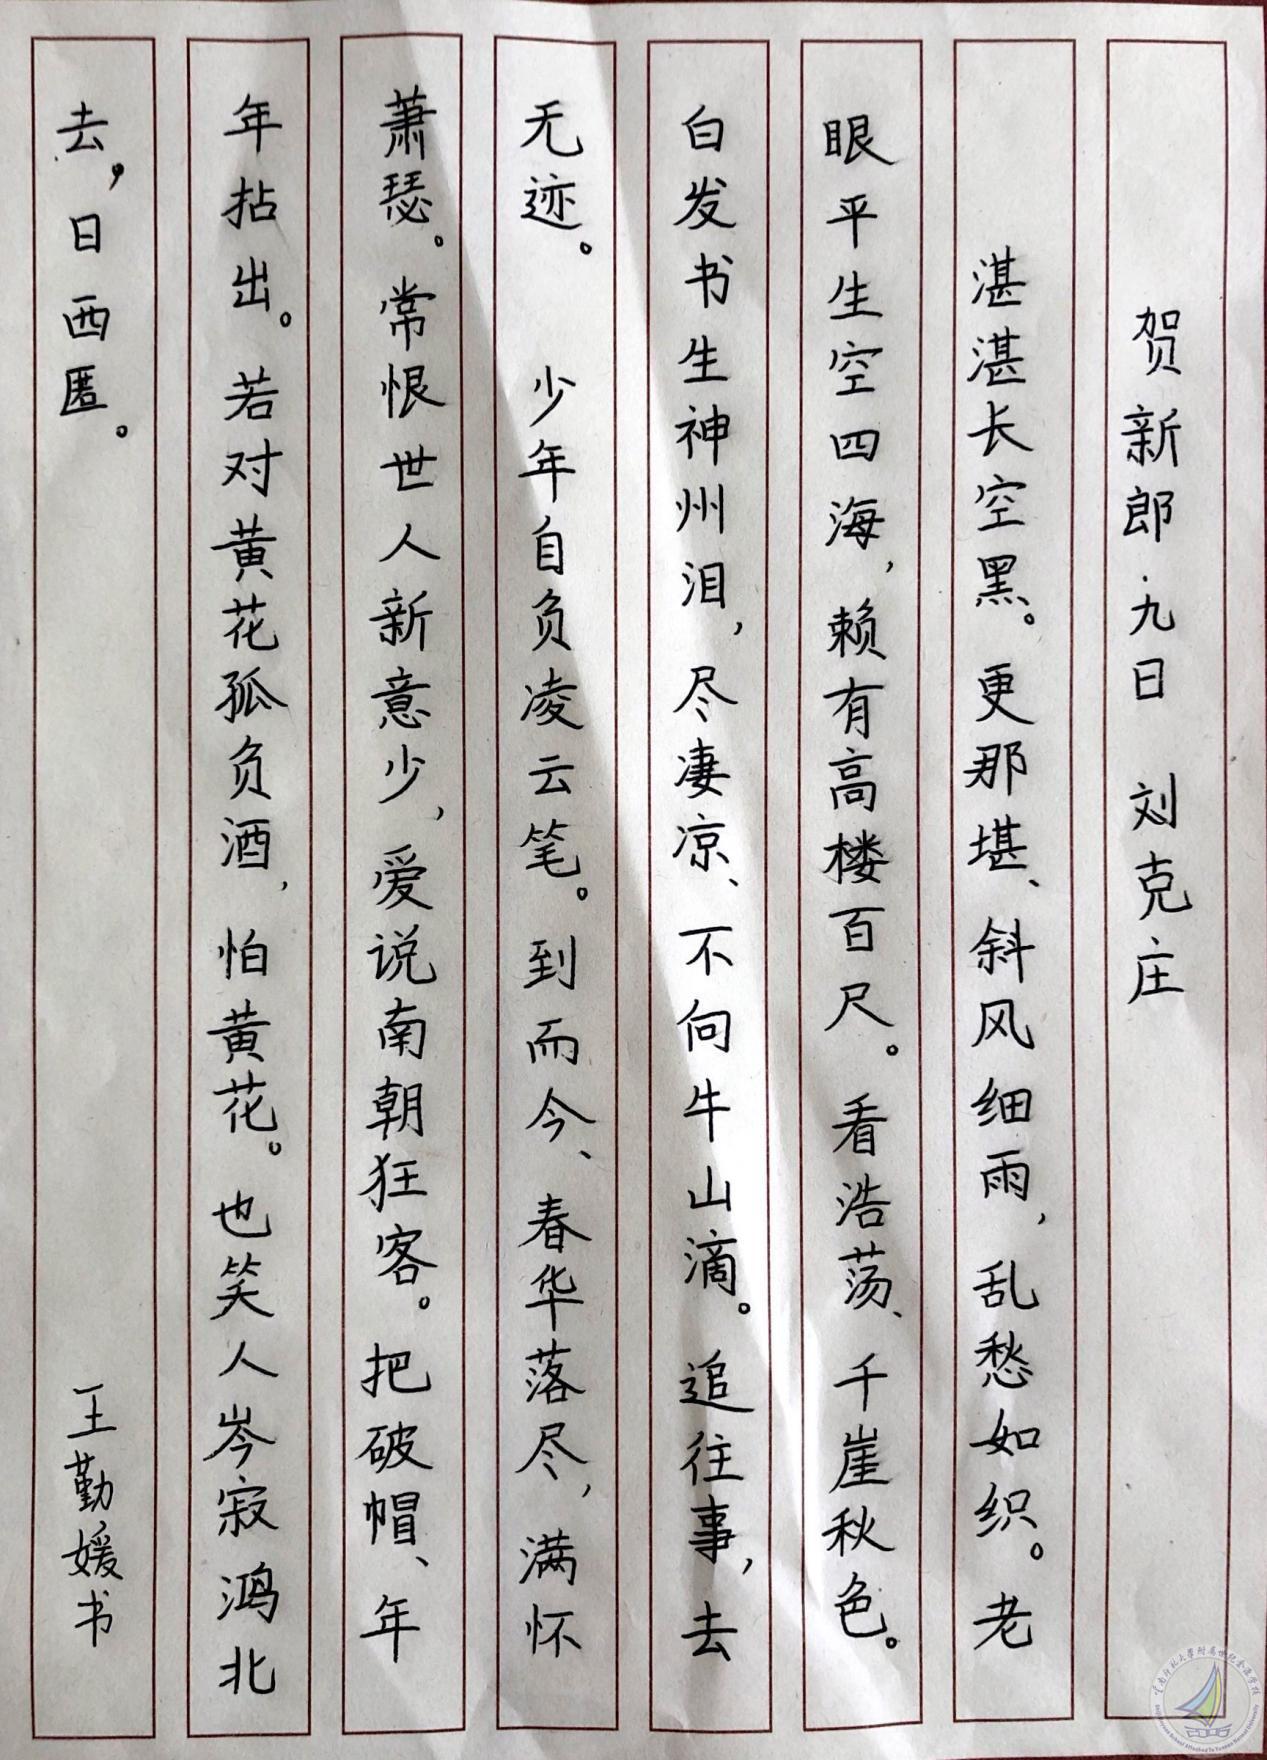 贺新郎·九日 刘克庄
湛湛长空黑。更那堪、斜风细雨，乱愁如织。老
眼平生空四海，赖有高楼百尺。看浩荡、千崖秋色。
白发书生神州泪，尽凄凉、不向牛山滴。追往事，去
无迹。 少年自负凌云笔。到而今、春华落尽，满怀
萧瑟。常恨世人新意少，爱说南朝狂客。把破帽、年
年拈出。若对黄花孤负酒，怕黄花。也笑人岑寂鸿北
去，日西匿。
王勤媛书